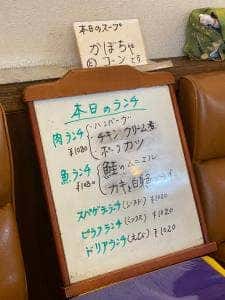 本日のスープ
かぼちゃ
コーン
本日のランチ
肉ランチ ハンバーグ
¥1080 チキンクリーム煮
ポークカツ
魚ランチ 鮭のムニエル
カキと白身
スパゲティランチ ¥1020
ピラフランチ(ミックス) ¥1020
ドリアランチ(えび) ¥1020